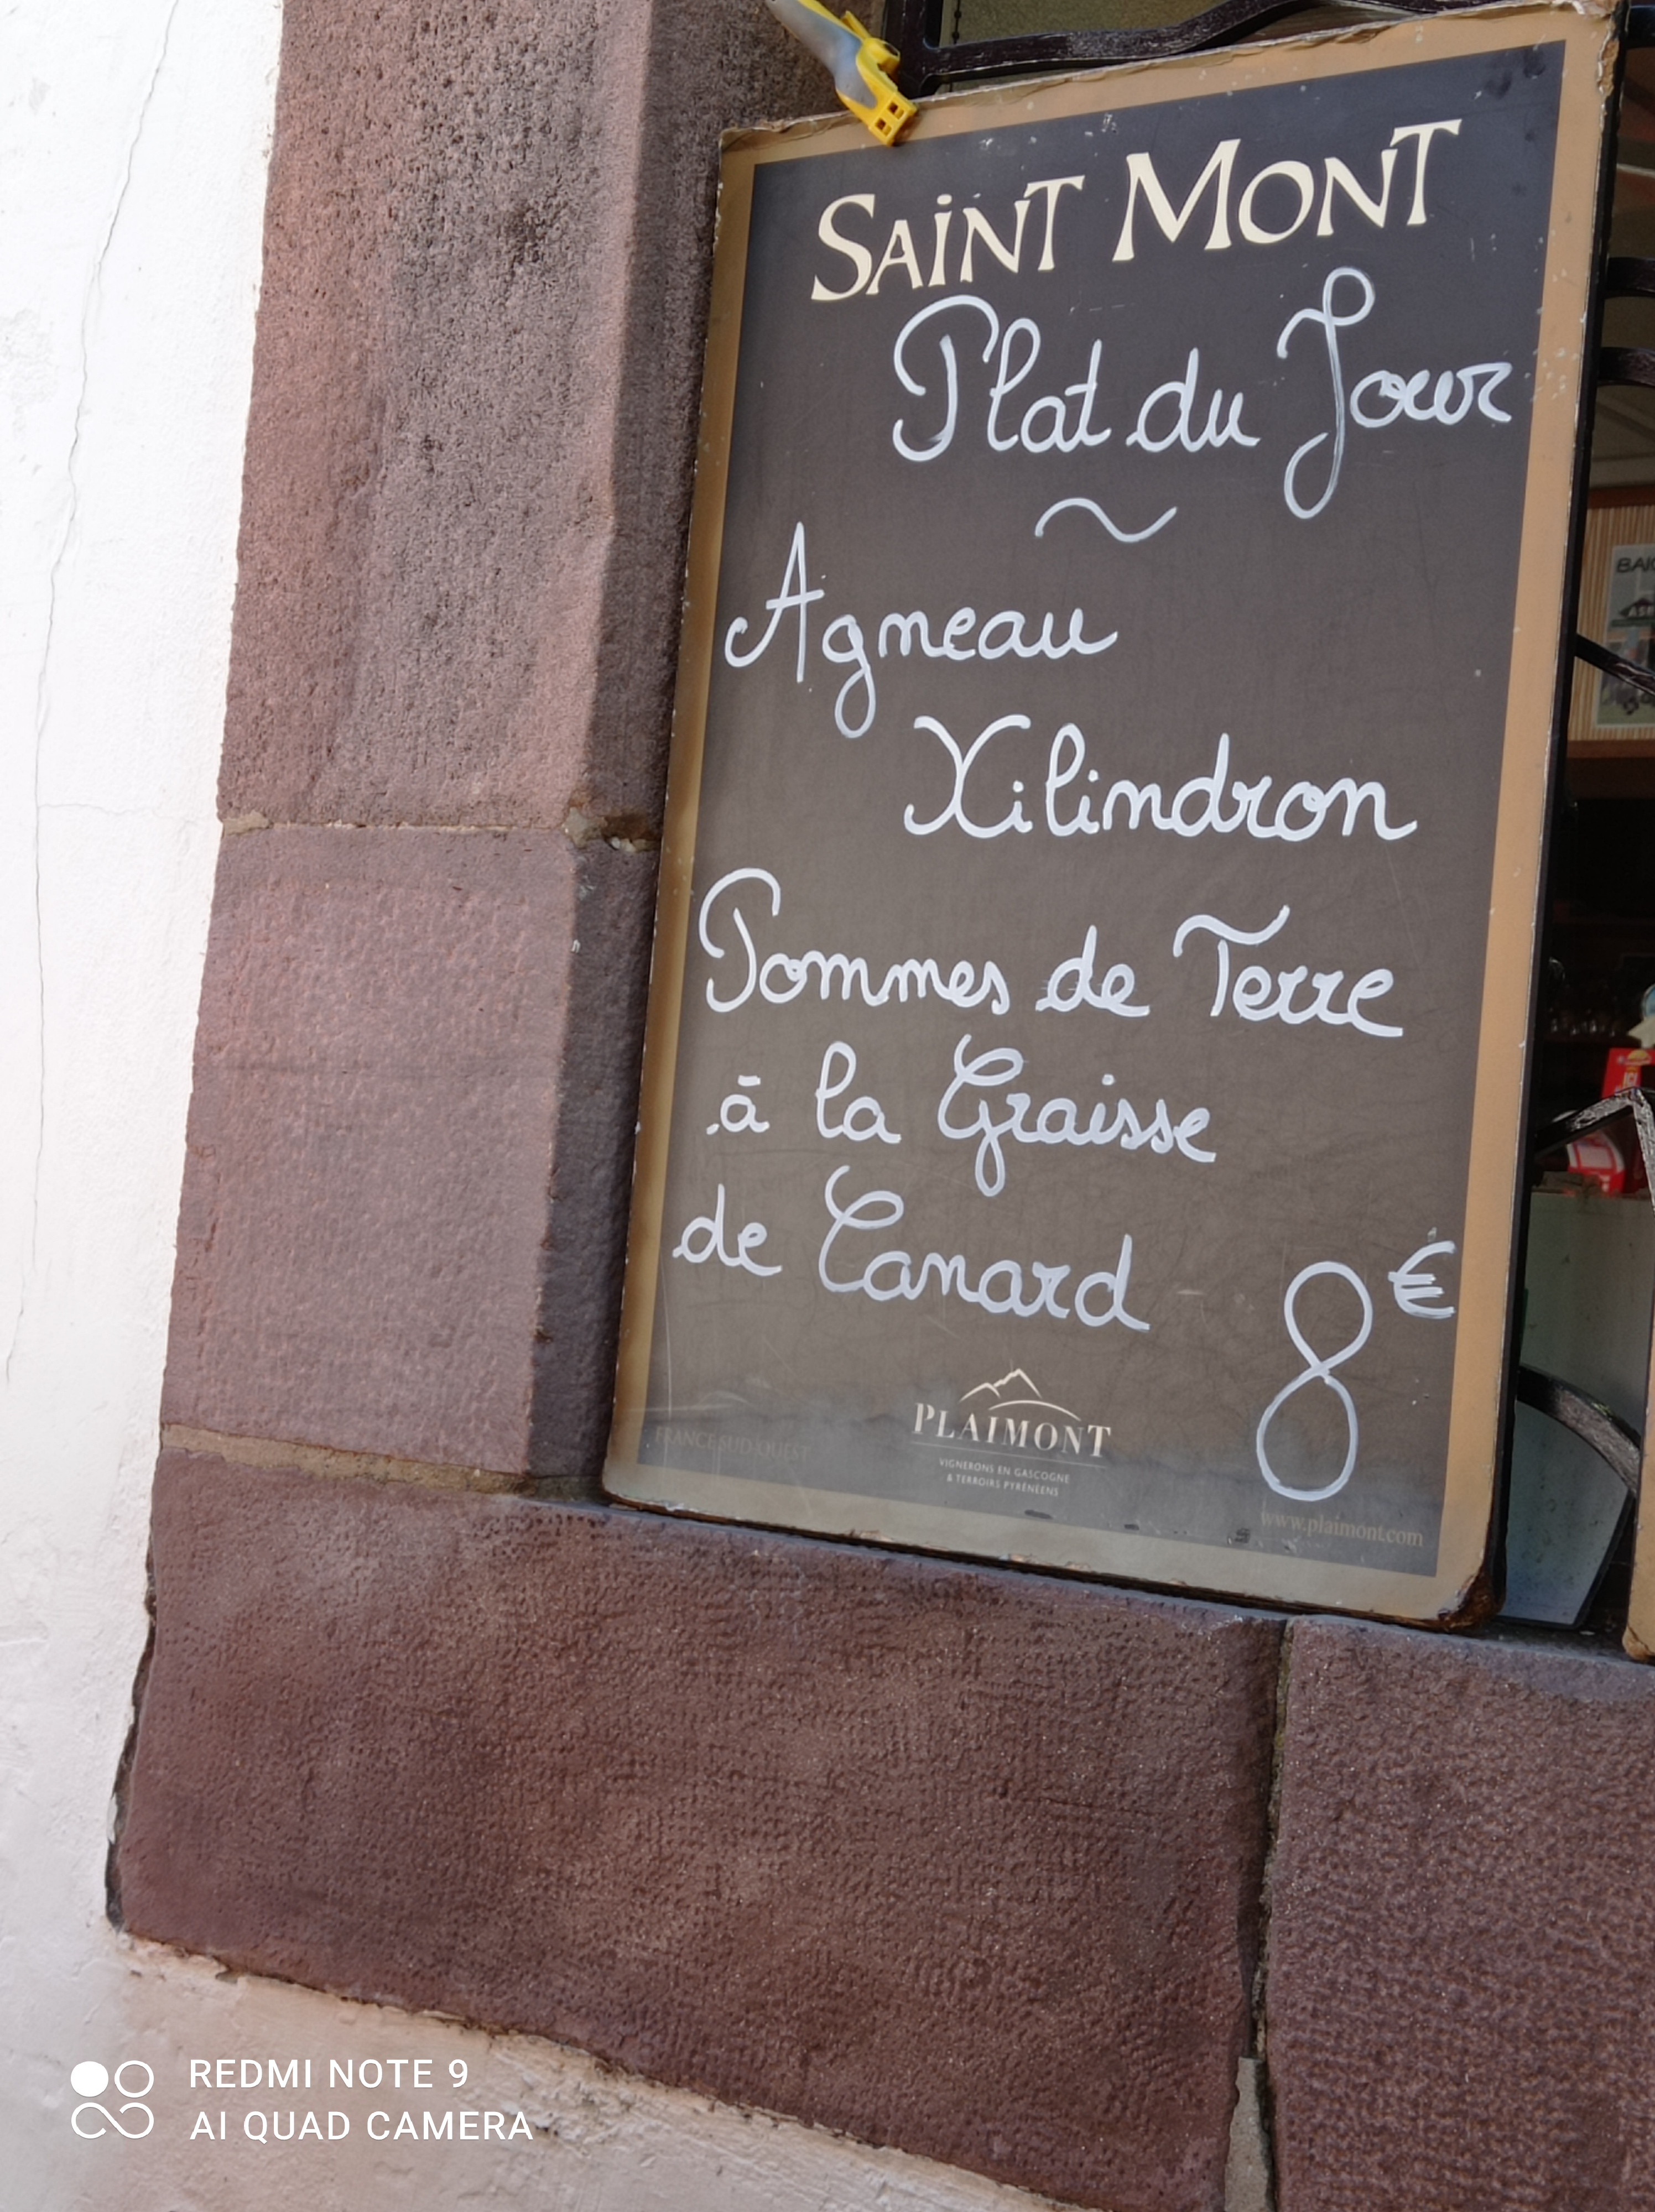 SAINT MONT
Plat du Jour
~
Agneau
Xilindron
Pommes de Terre
à la Graisse
de Canard
8€
PLAIMONT
VIGNERONS EN GASCOGNE
& TERROIRS PYRÉNÉENS
FRANCE SUD OUEST
www.plaimont.com
REDMI NOTE 9
AI QUAD CAMERA